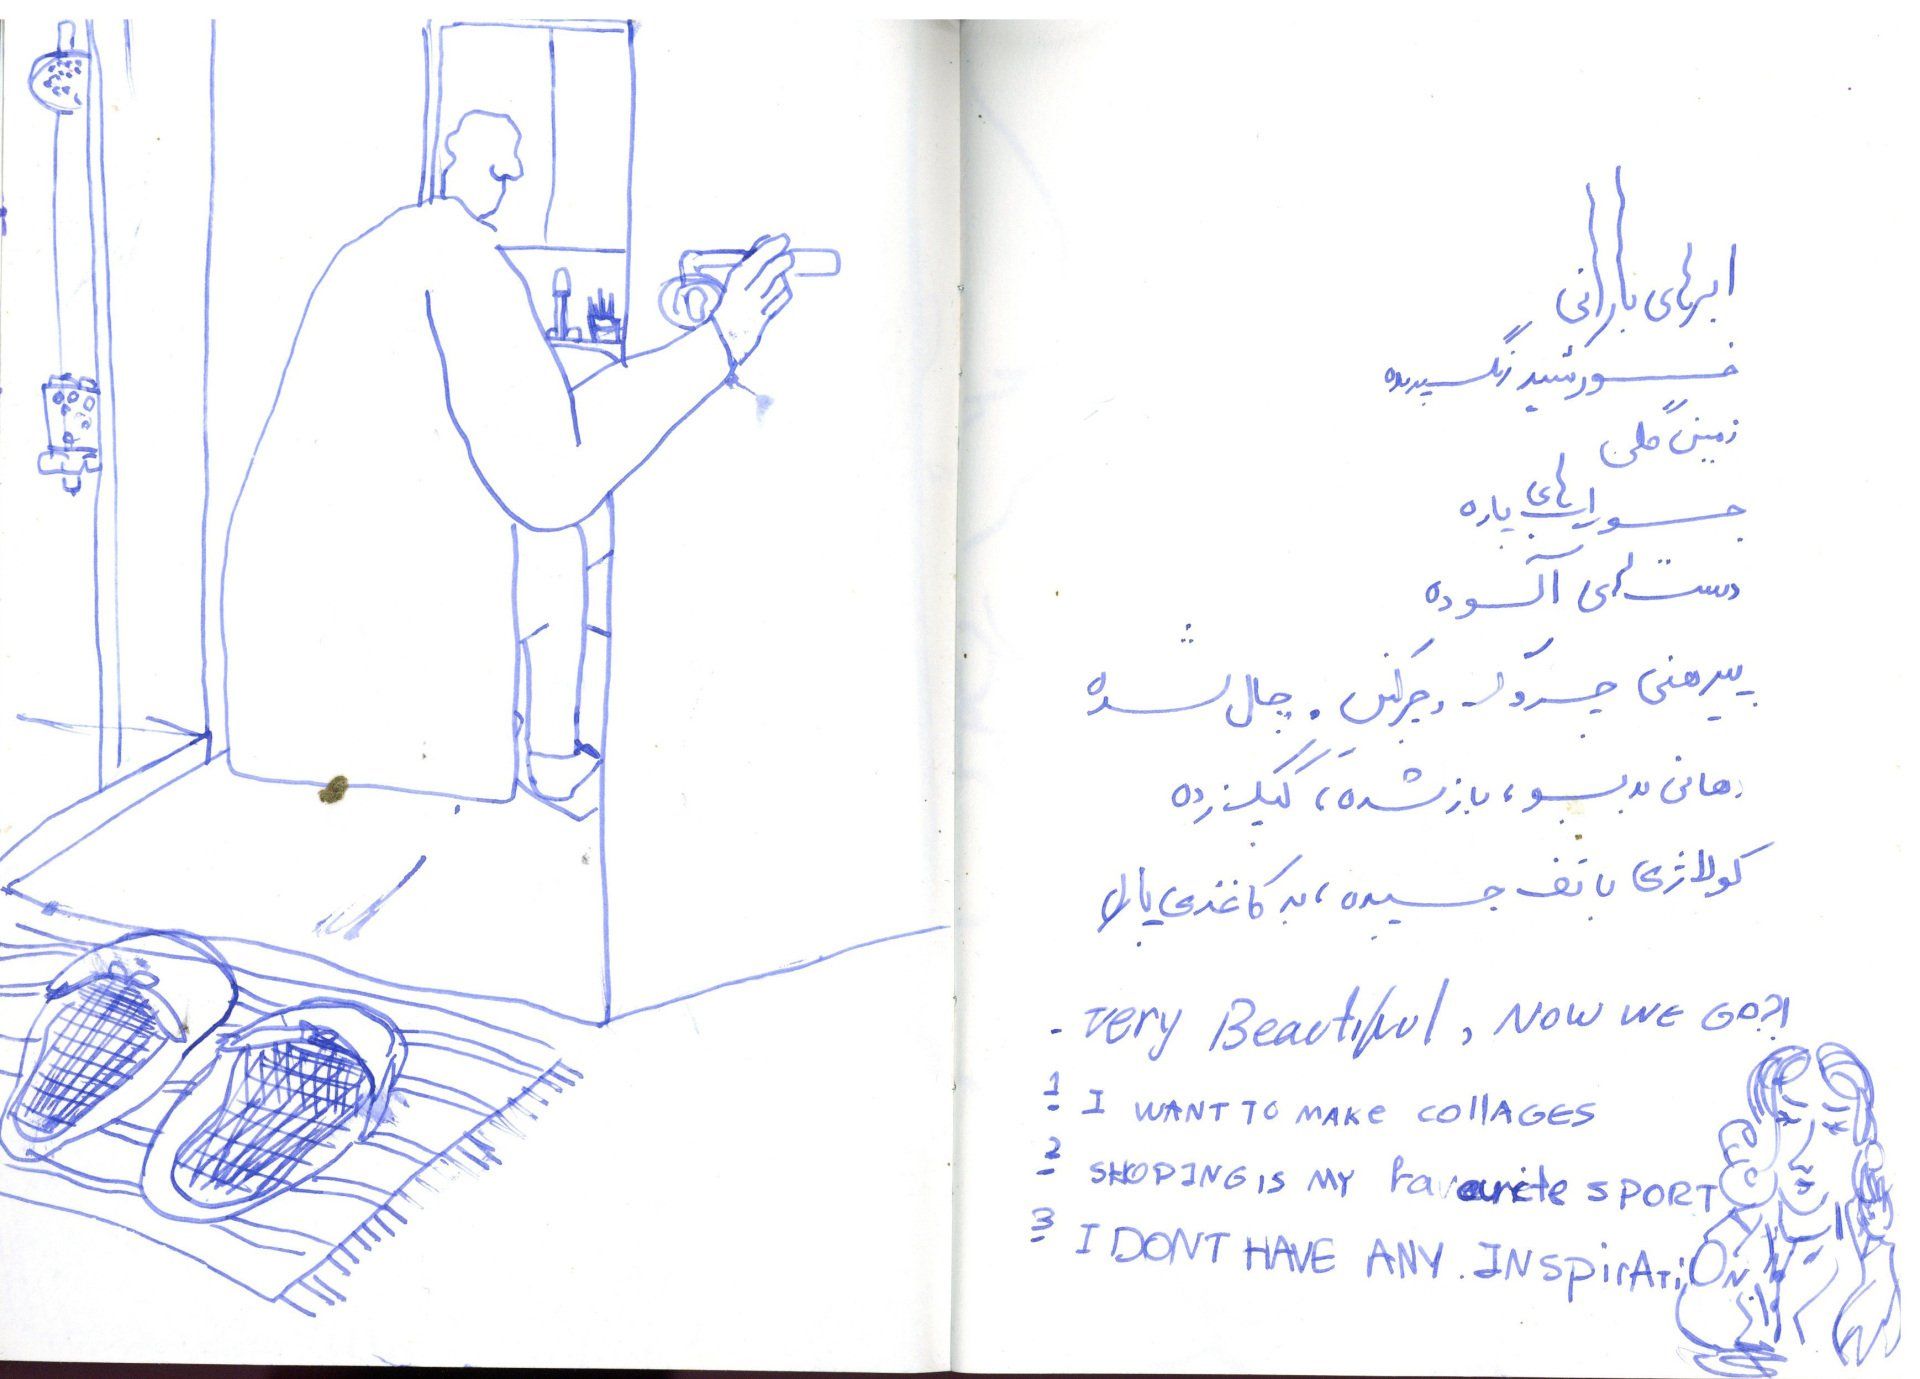 ابرهای بارانی
خورشید زنگ پریده
زمین گلی
جوراب‌های پاره
دست‌های آلوده
پیرهنی چروک و چرکین، چال شده
دهانی بدبو، باز شده، کپک زده
کولاژی با تف چسبیده، به کاغذی
- Very Beautiful, NOW WE GO?!
1 I WANT TO MAKE COLLAGES
2 SHOPING IS MY favourite SPORT
3 I DONT HAVE ANY. INSpirATiON